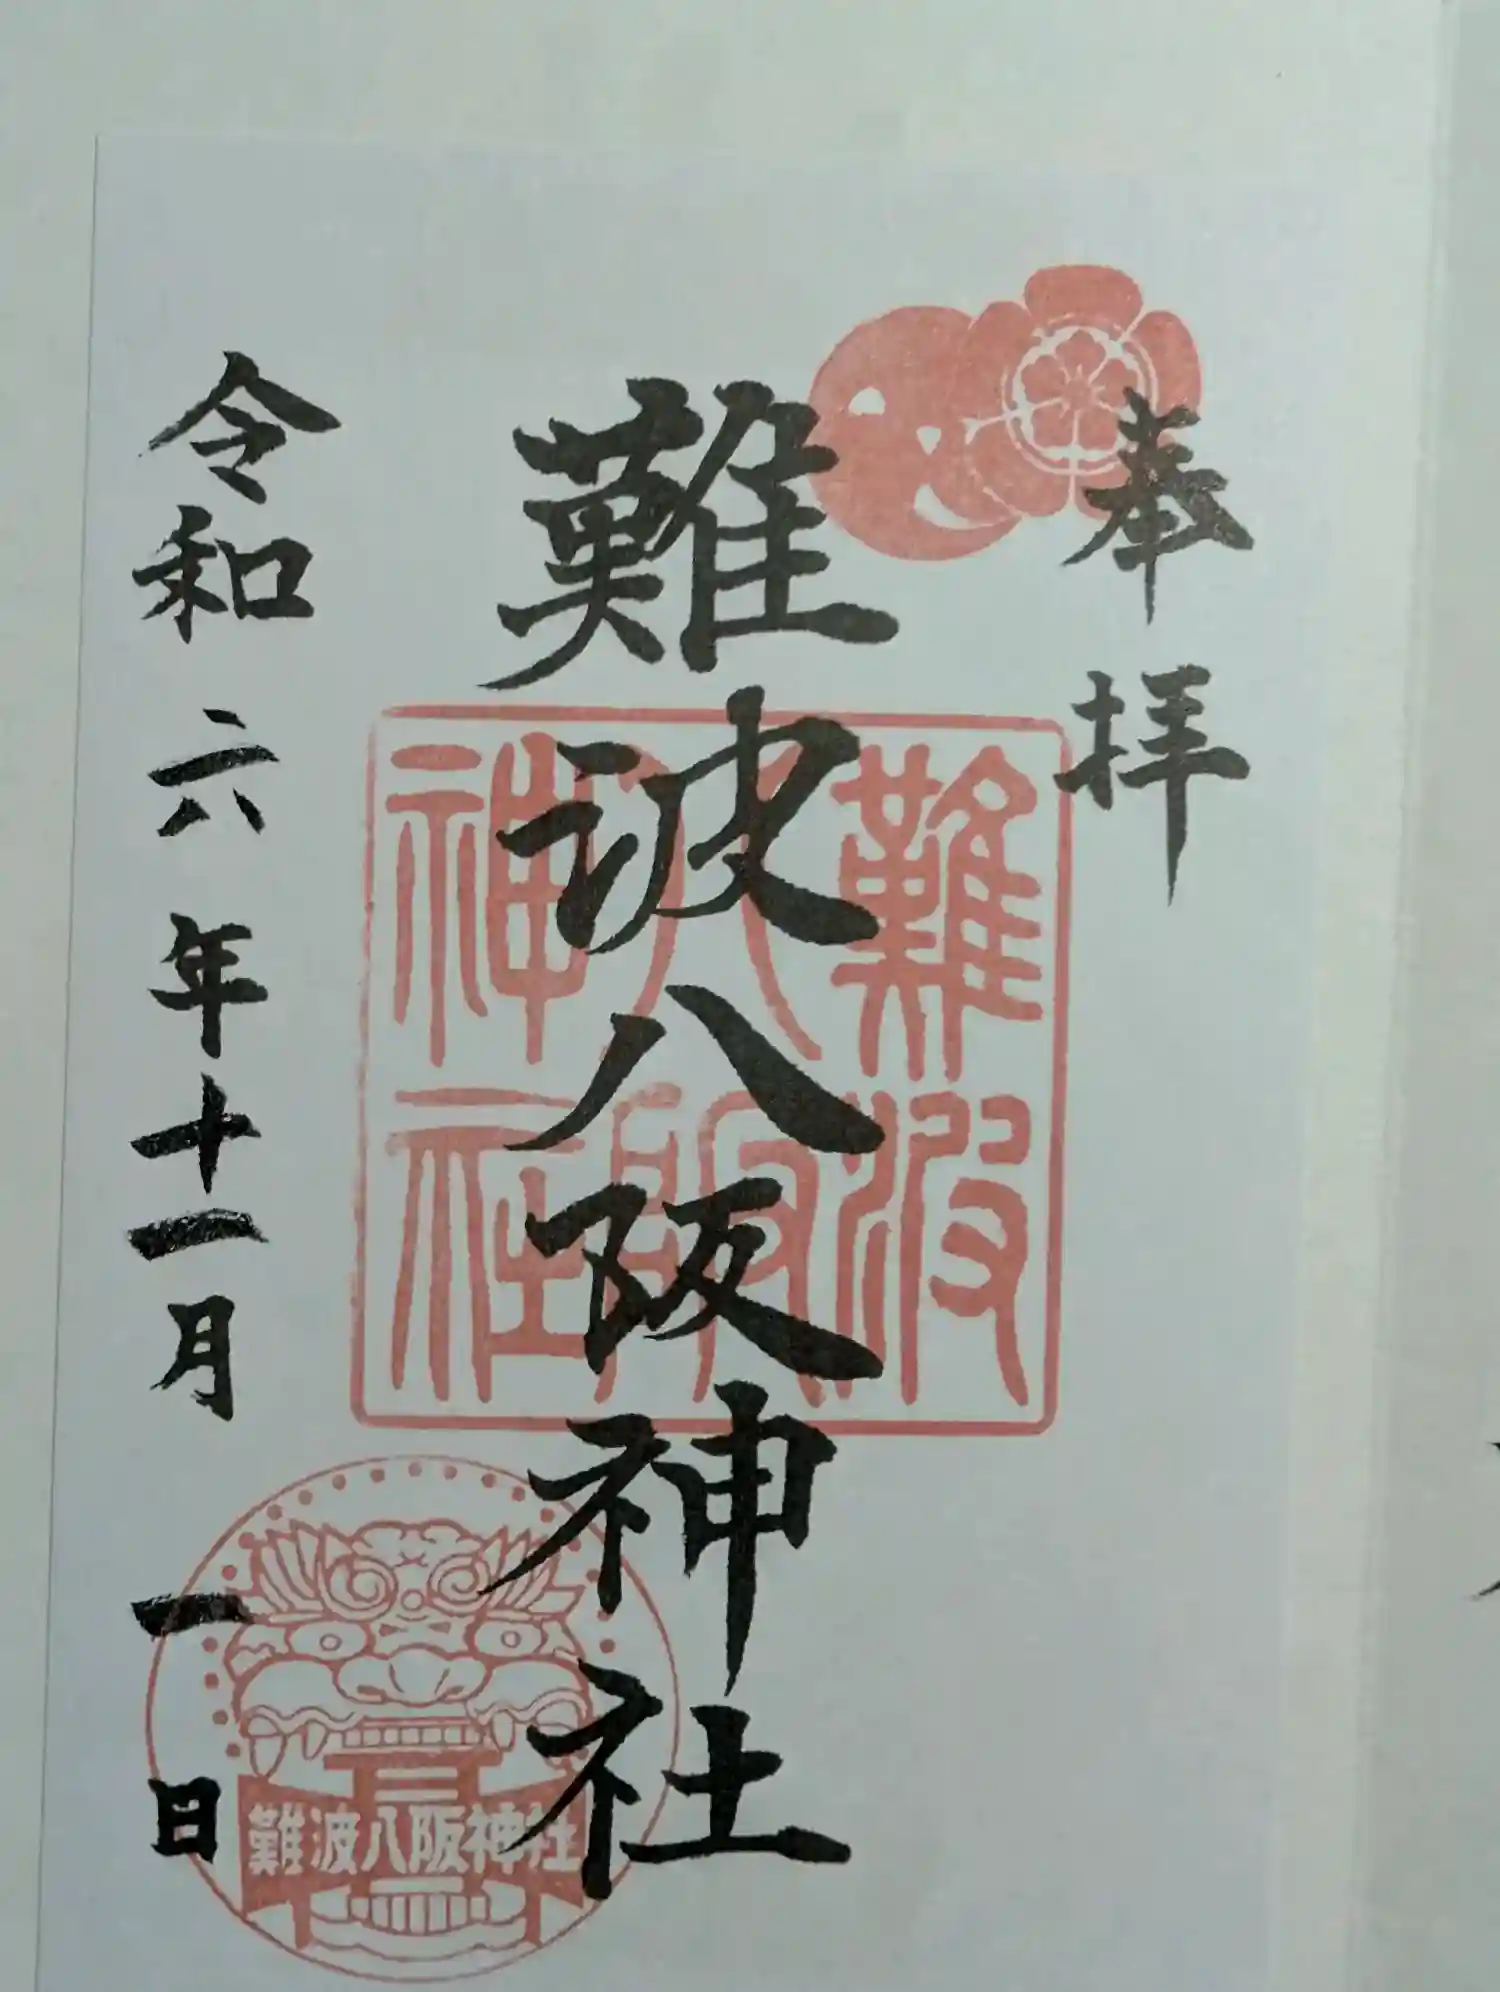 奉拝
難波八阪神社
令和六年十一月一日
難波
八阪
神社
難波八阪神社